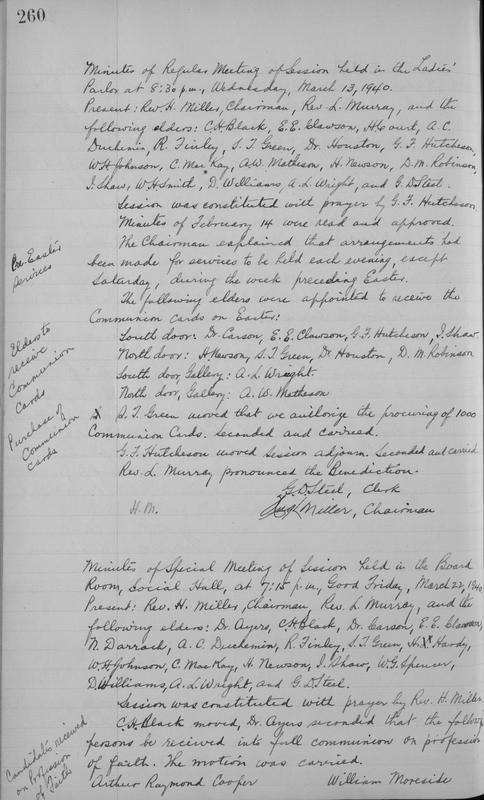 260
Minutes of Regular Meeting of Session held in the Ladies'
Parlor at 8:30 p.m., Wednesday, March 13, 1940.
Present: Rev. H. Miller, Chairman, Rev. L. Murray, and the
following elders: C.H. Black, E.E. Clawson, H. Court, A.C.
Duchemin, R. Finley, S.T. Green, Dr. Houston, G.F. Hutcheson,
W.H. Johnson, C. MacKay, A.W. Matheson, H. Newson, D.M. Robinson,
I. Shaw, W.H. Smith, D. Williams, A.L. Wright, and G.D. Steel.
Session was constituted with prayer by G.F. Hutcheson.
Minutes of February 14 were read and approved.
Pre-Easter
Services
The Chairman explained that arrangements had
been made for services to be held each evening, except
Saturday, during the week preceding Easter.
Elders to
receive
Communion
Cards
The following elders were appointed to receive the
Communion cards on Easter:
South door: Dr. Carson, E.E. Clawson, G.F. Hutcheson, I. Shaw.
North door: H. Newson, S.T. Green, Dr. Houston, D.M. Robinson
South door, Gallery: A.L. Wright.
North door, Gallery: A.W. Matheson
Purchase of
Communion
Cards
S.T. Green moved that we authorize the procuring of 1000
Communion Cards. Seconded and carried.
G.F. Hutcheson moved Session adjourn. Seconded and carried
Rev. L. Murray pronounced the Benediction.
G.D. Steel, Clerk
H.M. Miller, Chairman
Minutes of Special Meeting of Session held in the Board
Room, Social Hall, at 7:15 p.m., Good Friday, March 22, 1940
Present: Rev. H. Miller, Chairman, Rev. L. Murray, and the
following elders: Dr. Ayers, C.H. Black, Dr. Carson, E.E. Clawson,
N. Darrach, A.C. Duchemin, R. Finley, S.T. Green, H. Hardy,
W.H. Johnson, C. MacKay, H. Newson, I. Shaw, W.G. Spencer,
D. Williams, A.L. Wright, and G.D. Steel.
Session was constituted with prayer by Rev. H. Miller.
Candidates received
on Profession
of Faith
C.H. Black moved, Dr. Ayers seconded that the following
persons be received into full communion on profession
of faith. The motion was carried.
Arthur Raymond Cooper William Moreside